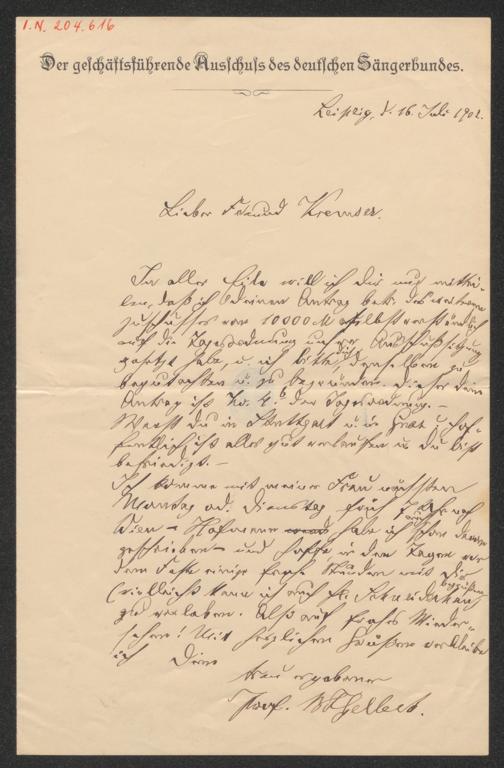 I.N. 204.616
Der geschäftsführende Ausschuss des deutschen Sängerbundes.
Leipzig, d. 16. Juli 1902.
Lieber Freund Kremser.
In aller Eile will ich dir nur mitthei-
len, daß ich deinen Antrag betr. des weiteren
Zuschusses von 10000 M selbstverständlich
auf die Tagesordnung unsrer Ausschußsitzung
gesetzt habe, u. ich bitte dich, denselben zu
begutachten u. zu begründen. Dieser dein
Antrag ist No. 4b der Tagesordnung. –
Warst du in Stuttgart u. in Graz u. hof-
fentlich ist alles gut verlaufen u. Du bist
befriedigt. –
Ich komme mit meiner Frau nächsten
Montag od. Dienstag früh 7 Uhr nach
Wien – Hofmann habe ich schon davon
geschrieben – und hoffe in den Tagen vor
dem Fest einige frohe Stunden mit Dir
(vielleicht kann ich auch
zu verleben. Also auf frohes Wieder-
sehen! Mit herzlichen Grüßen verbleibe
ich Dein
treu ergebener
Prof.